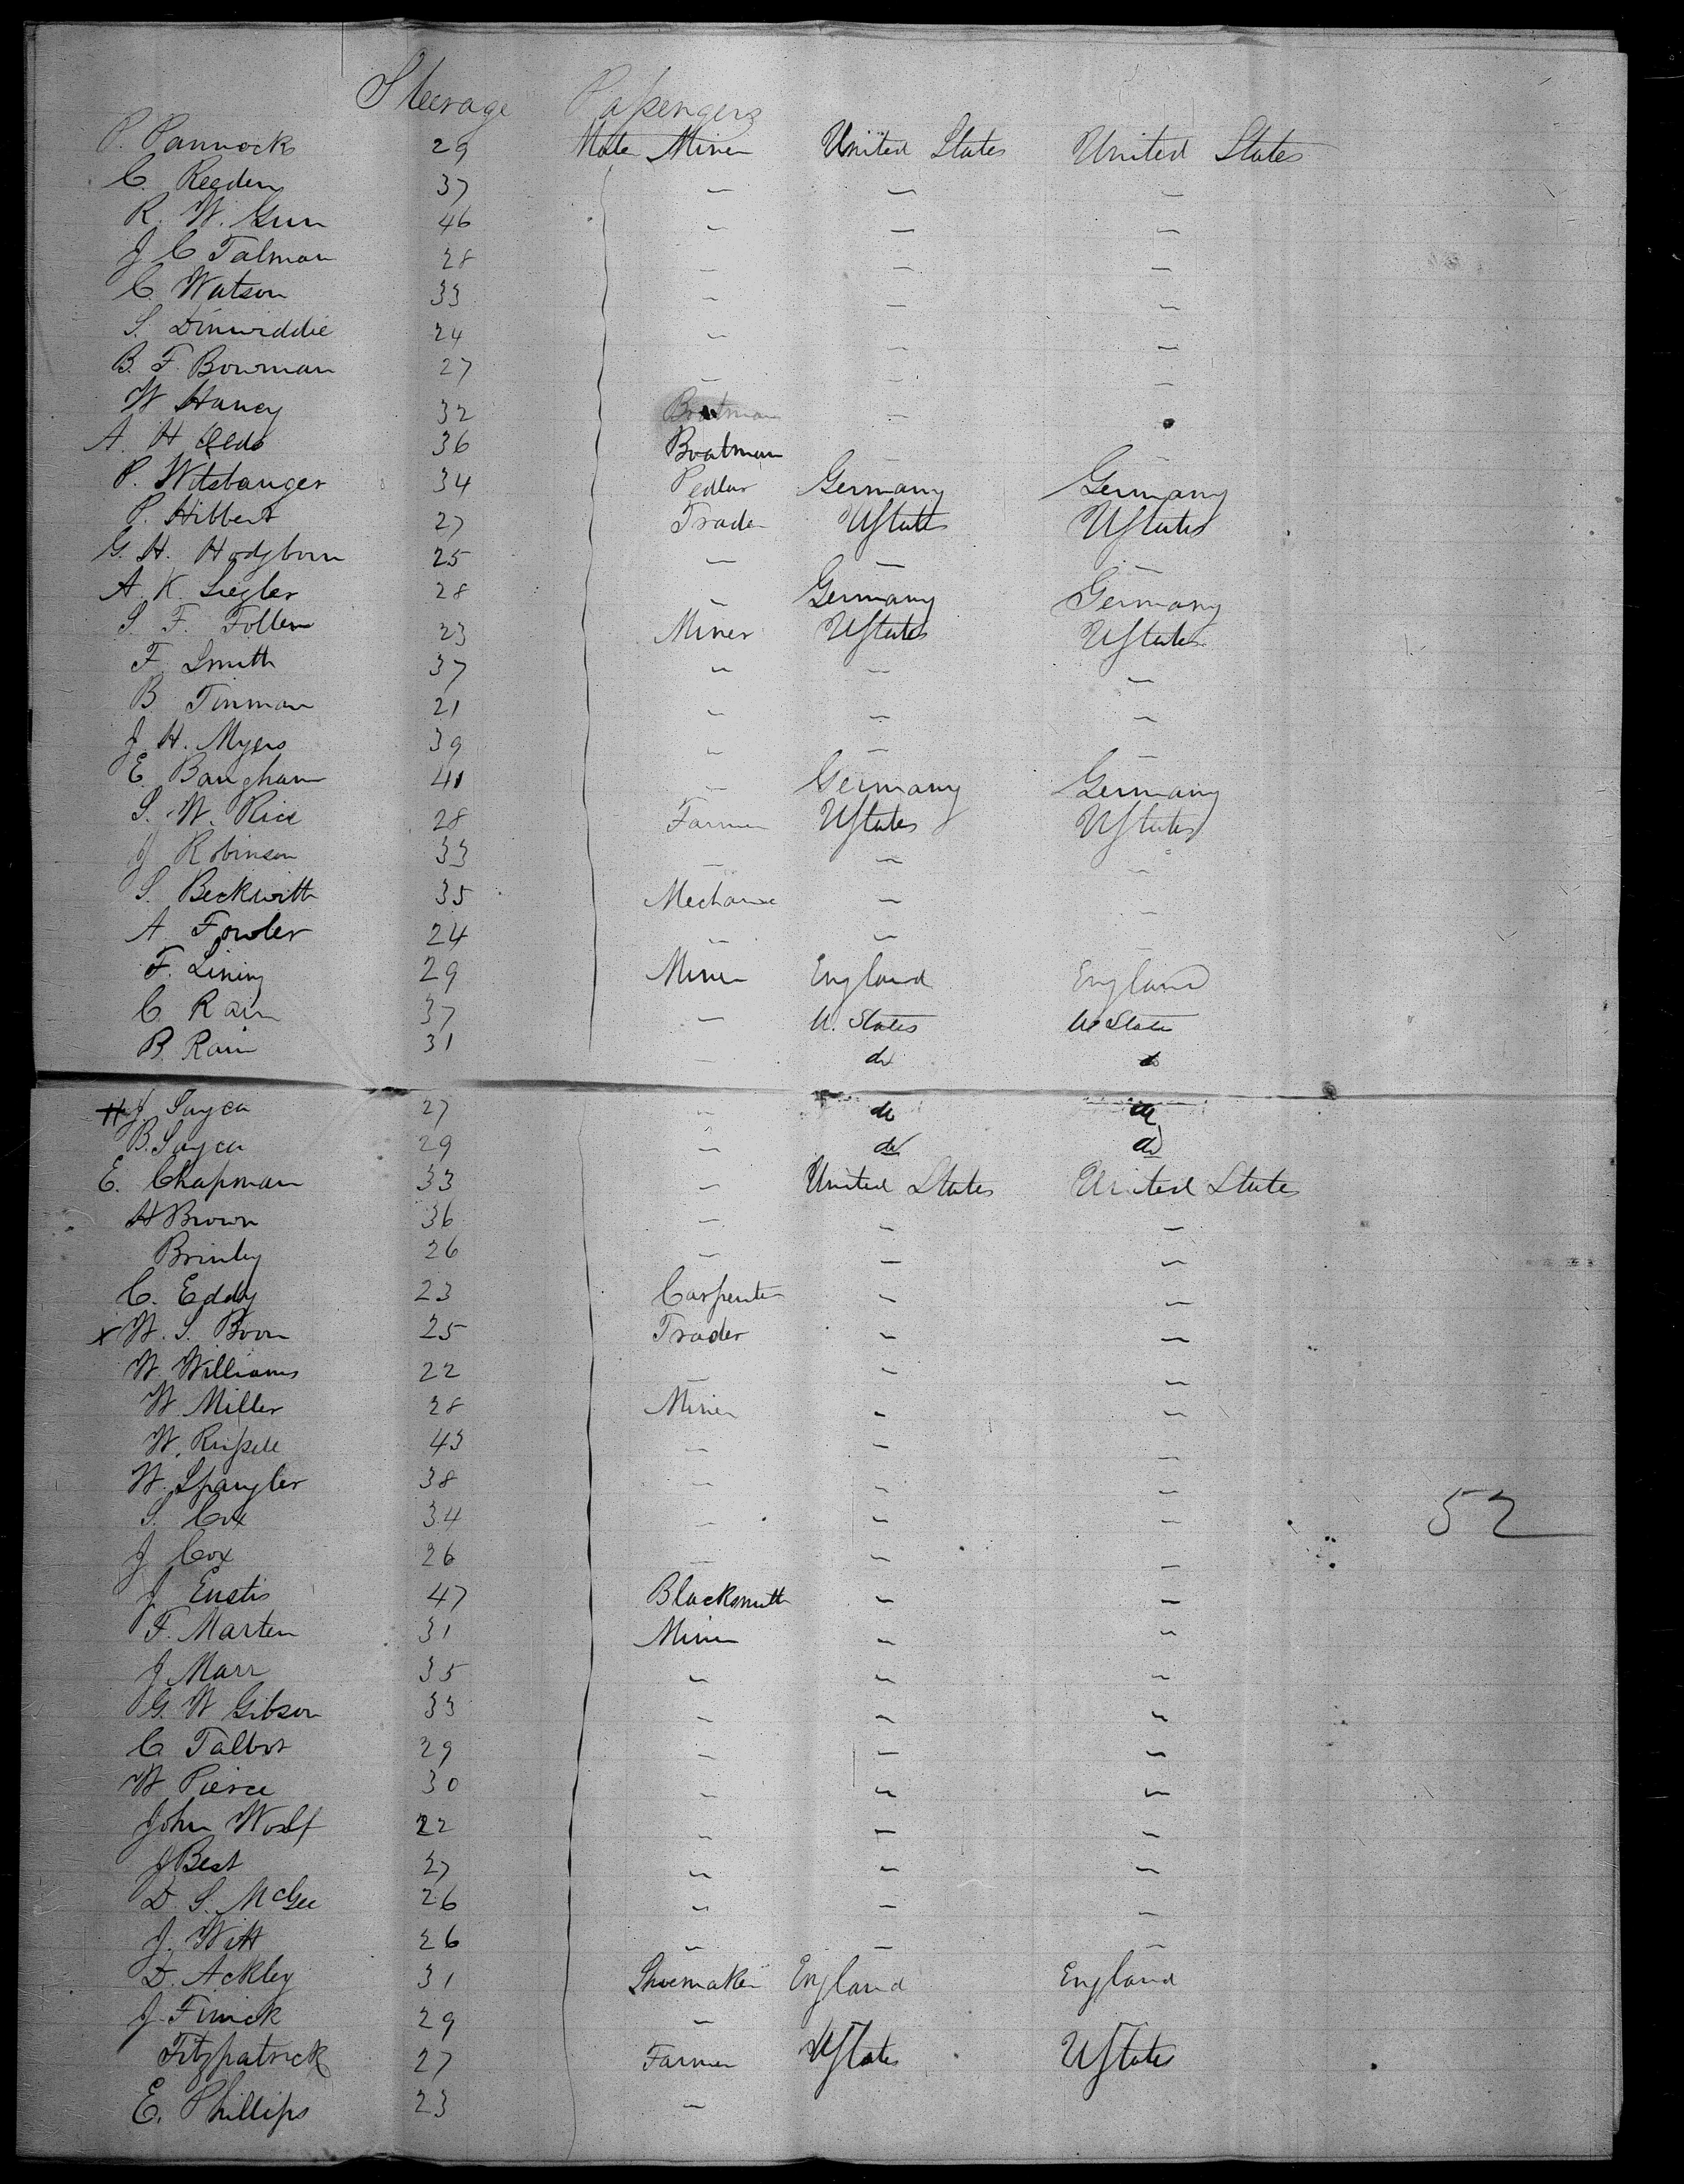 Steerage Passengers
P. Pannock 29 Male Miner United States United States
C. Reeden 37 — — —
R. W. Gun 46 — — —
J C Talman 28 — — —
C. Watson 33 — — —
S. Dinwiddie 24 — — —
B. F. Bowman 27 — — —
W Haney 32 Boatman —
A. H Olds 36 Boatman — —
P. Witsbanger 34 Pedlar Germany Germany
P. Hibbert 27 Trader UStates UStates
G. H. Hodgborn 25 — — —
A. K. Siegler 28 — Germany Germany
S. F. Follen 23 Miner UStates UStates
F. Smith 37 — — —
B Tinman 21 — — —
J. H. Myers 39 — — —
E Baugham 41 — Germany Germany
S. W. Rice 28 Farmer UStates UStates
J Robinson 33 — — —
S. Beckwith 35 Mechanic — —
A Fowler 24 — — —
F. Lining 29 Miner England England
C. Rain 37 — U. States U States
B. Rain 31 — do do
J. Sayca 27 — do do
B. Sayca 29 — do do
E. Chapman 33 — United States United States
H Brown 36 — — —
Brinley 26 — — —
C. Eddy 23 Carpenter — —
x W. S. Boon 25 Trader — —
W. Williams 22 — — —
W. Miller 28 Miner — —
W. Russell 43 — — —
W. Spangler 38 — — —
S. Cox 34 — — —
52
J Cox 26 — — —
J Eustis 47 Blacksmith — —
F. Marten 31 Miner — —
J Marr 35 — — —
G. W Gibson 33 — — —
C Talbot 29 — — —
W Pierce 30 — — —
John Woolf 22 — — —
J Best 27 — — —
D. S. McGee 26 — — —
J. Witt 26 — — —
D. Ackley 31 Shoemaker England England
J. Finick 29 —
Fitzpatrick 27 Farmer UStates UStates
E. Phillips 23 —